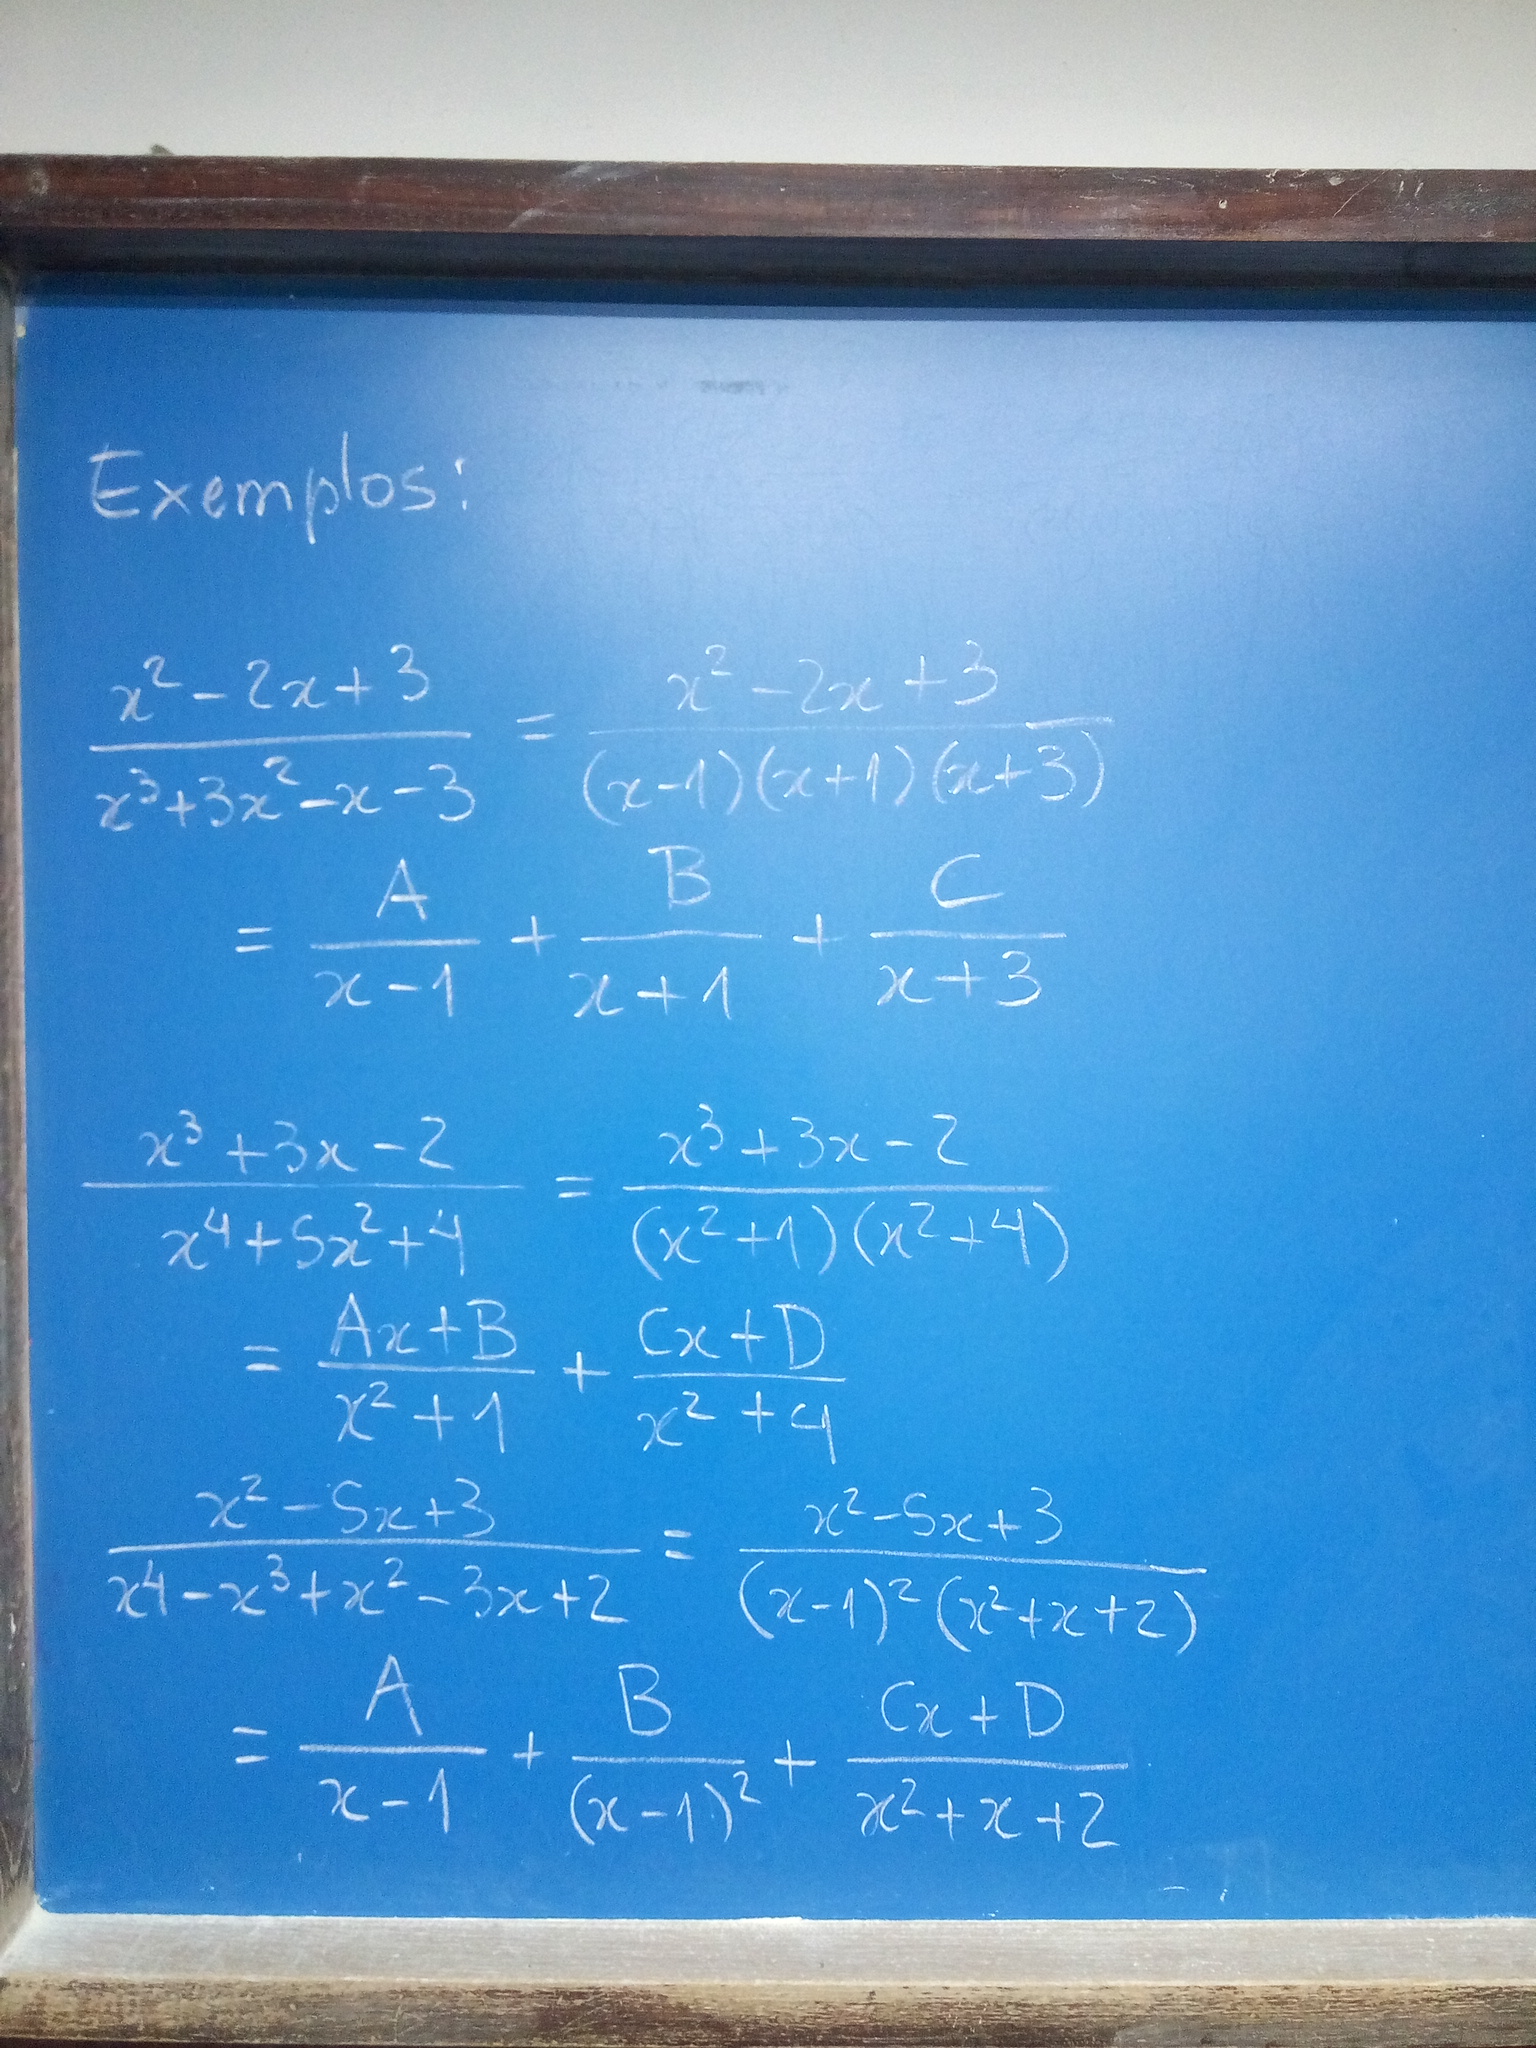 Exemplos:
x² - 2x + 3 / x³ + 3x² - x - 3 = x² - 2x + 3 / (x-1)(x+1)(x+3)
= A / x - 1 + B / x + 1 + C / x + 3
x³ + 3x - 2 / x⁴ + 5x² + 4 = x³ + 3x - 2 / (x² + 1)(x² + 4)
= Ax + B / x² + 1 + Cx + D / x² + 4
x² - 5x + 3 / x⁴ - x³ + x² - 3x + 2 = x² - 5x + 3 / (x-1)² (x² + x + 2)
= A / x - 1 + B / (x - 1)² + Cx + D / x² + x + 2